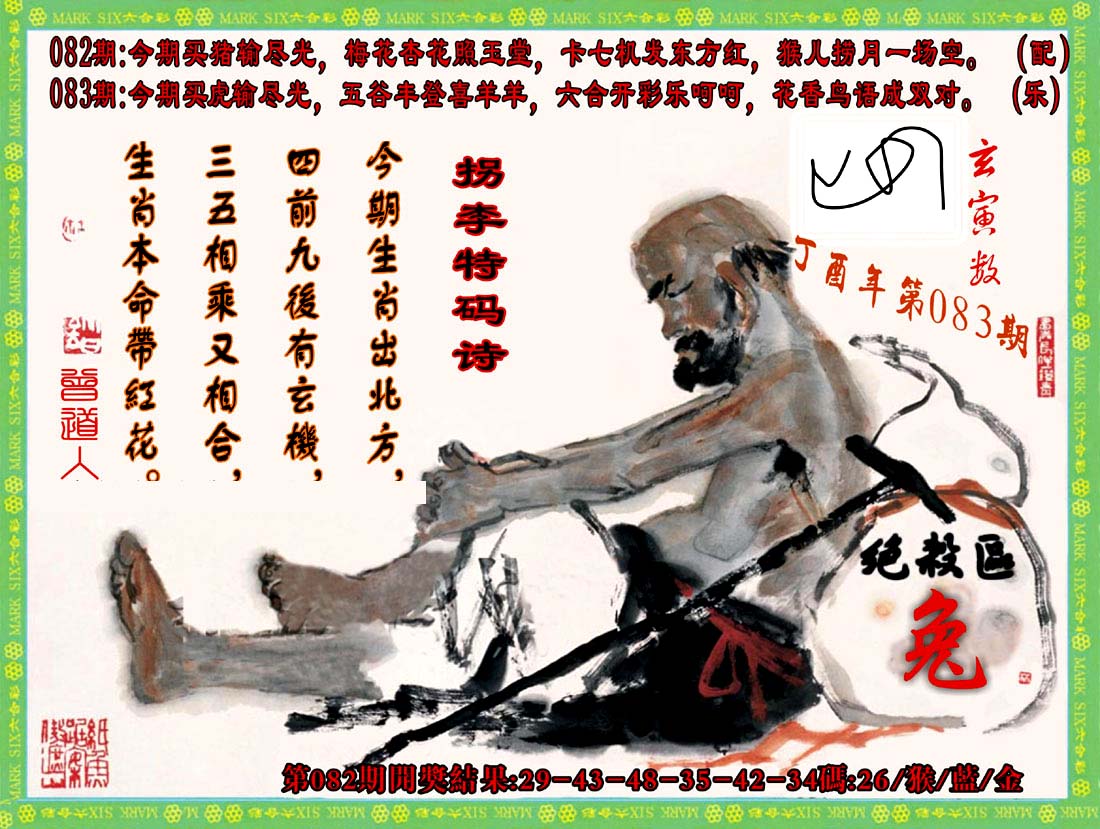 MARK SIX六合彩 MARK SIX六合彩 MARK SIX六合彩 MARK SIX六合彩 MARK SIX六合彩 MARK SIX六合彩
082期:今期买猪输尽光，梅花杏花照玉堂，卡七机发东方红，猴儿捞月一场空。（配）
083期:今期买虎输尽光，五谷丰登喜羊羊，六合开彩乐呵呵，花香鸟语成双对。（乐）
玄寅数
丁酉年第083期
拐李特码诗
今期生肖出北方，
四前九後有玄機，
三五相乘又相合，
生肖本命帶紅花。
曾道人
绝殺區
兔
第082期開獎結果:29-43-48-35-42-34碼:26/猴/藍/金